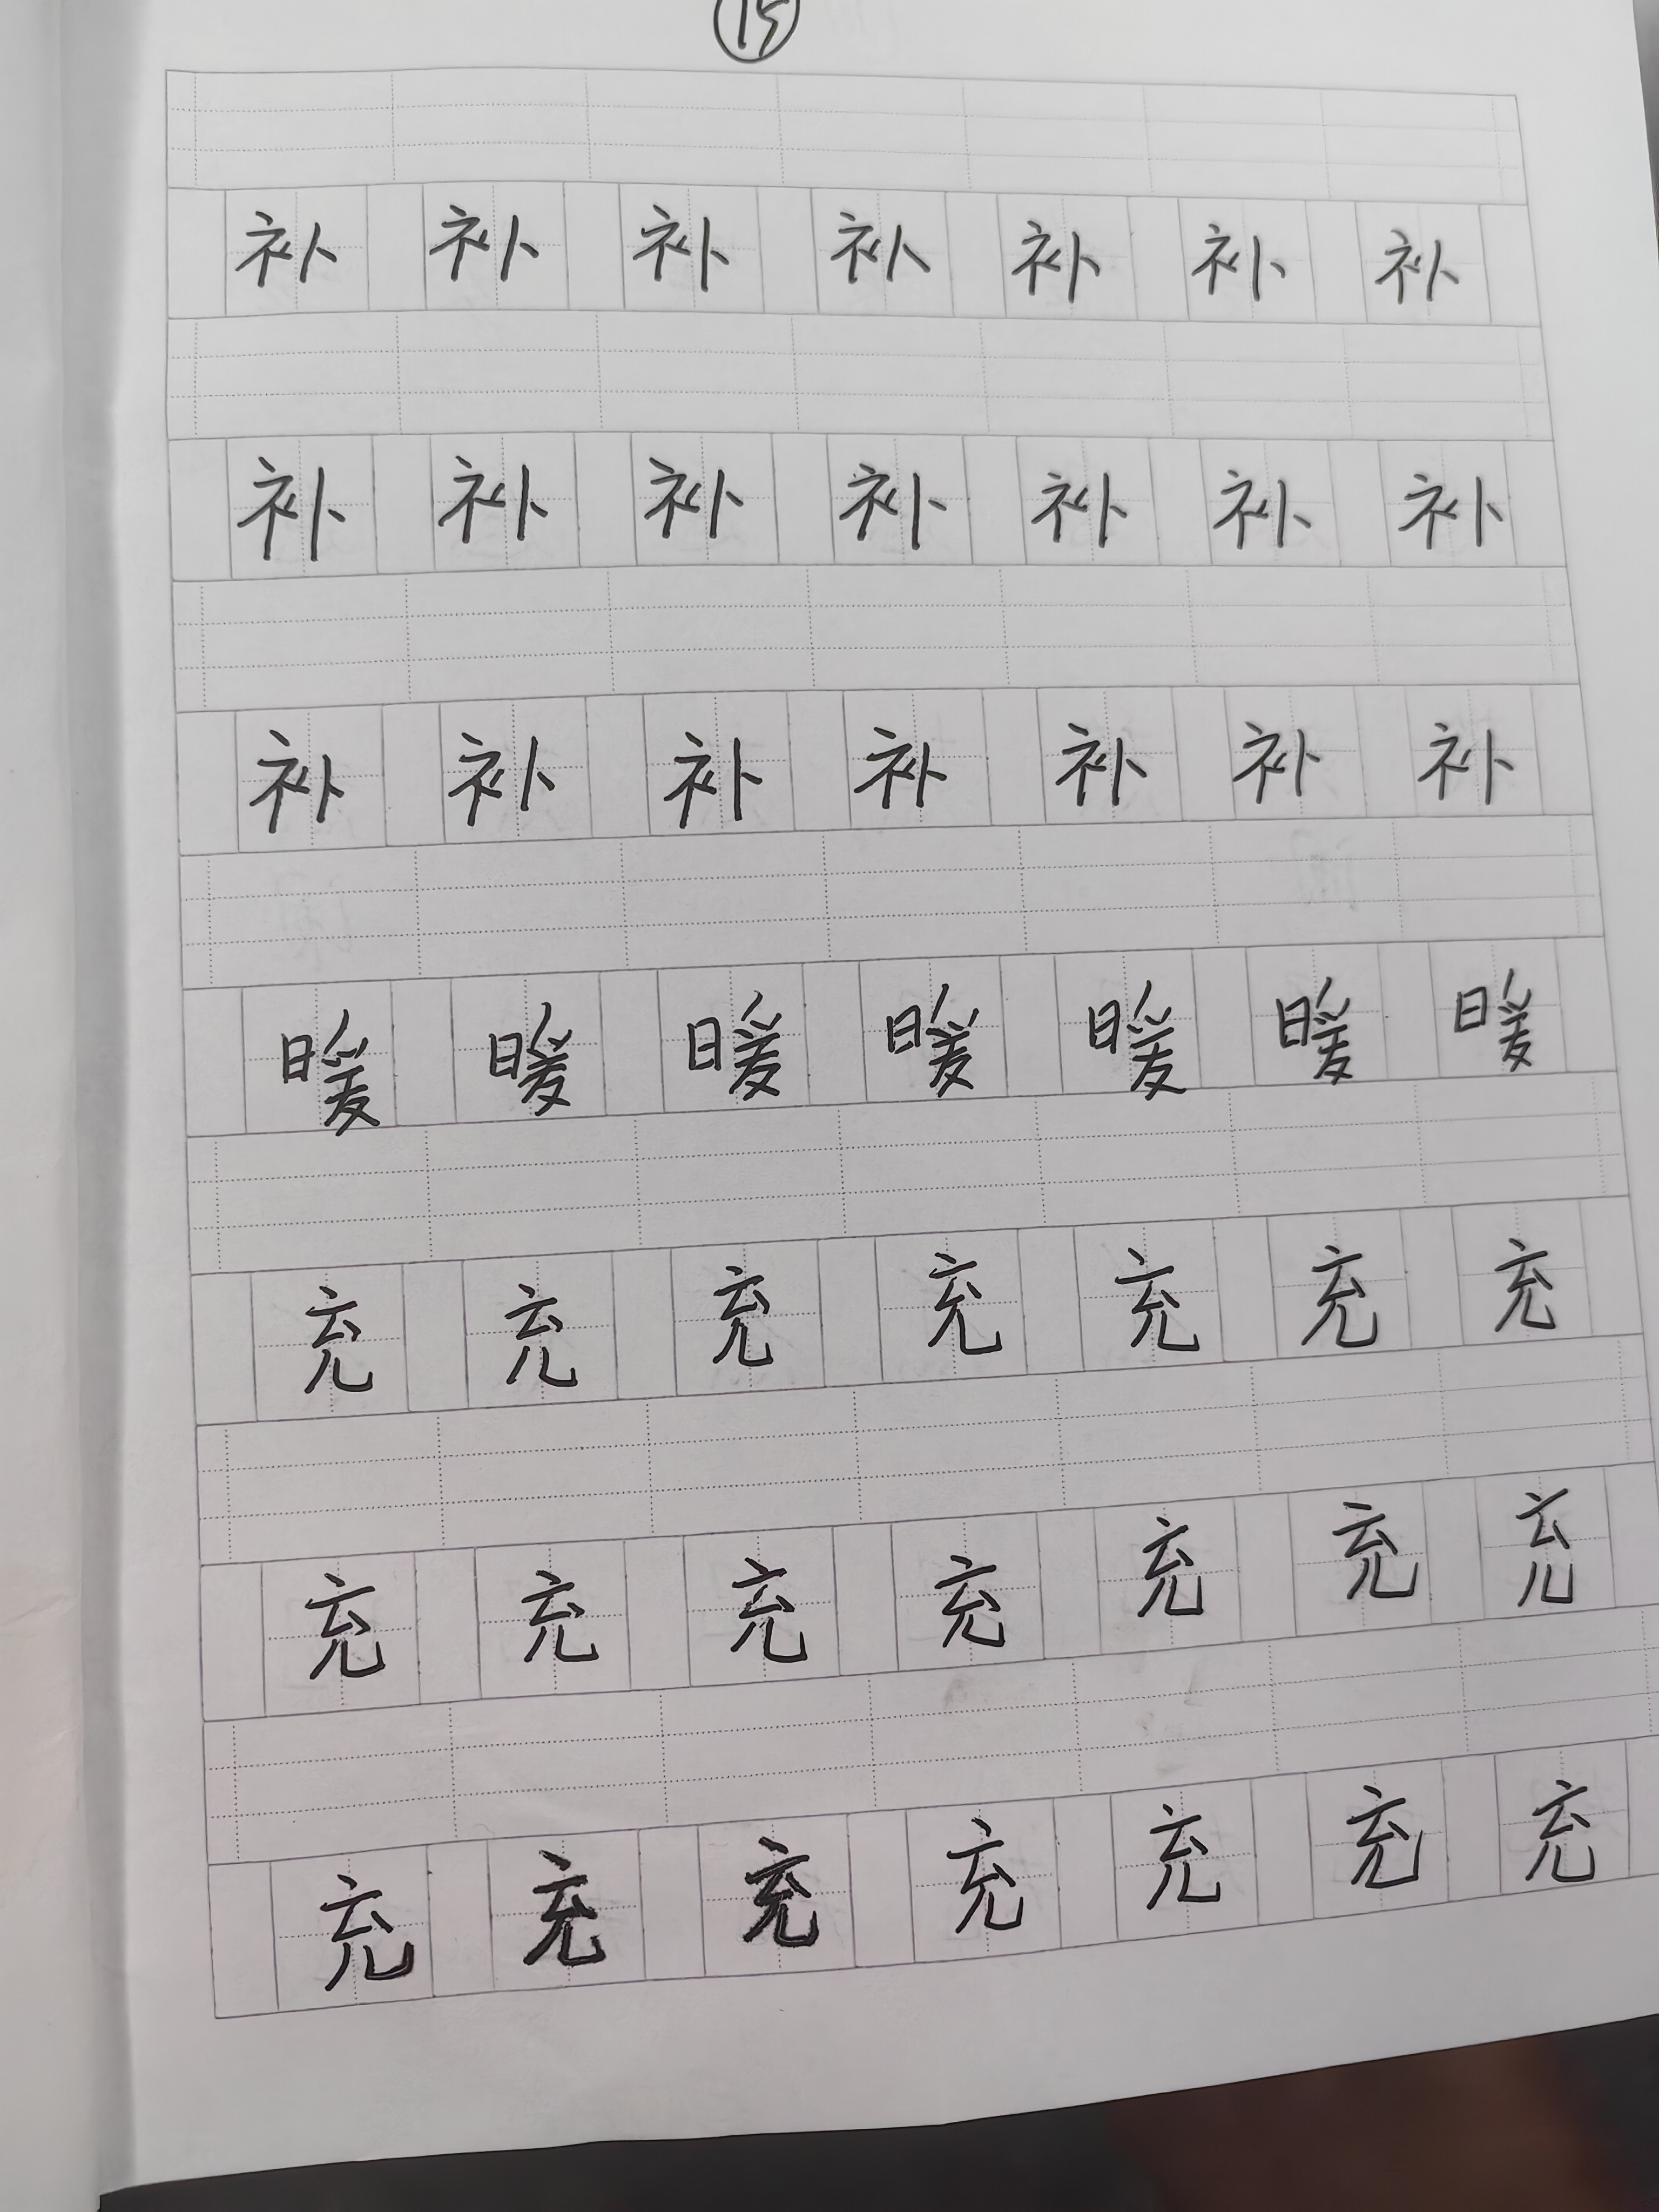 ⑮
补 补 补 补 补 补 补
补 补 补 补 补 补 补
补 补 补 补 补 补 补
暖 暖 暖 暖 暖 暖 暖
充 充 充 充 充 充 充
充 充 充 充 充 充 充
充 充 充 充 充 充 充